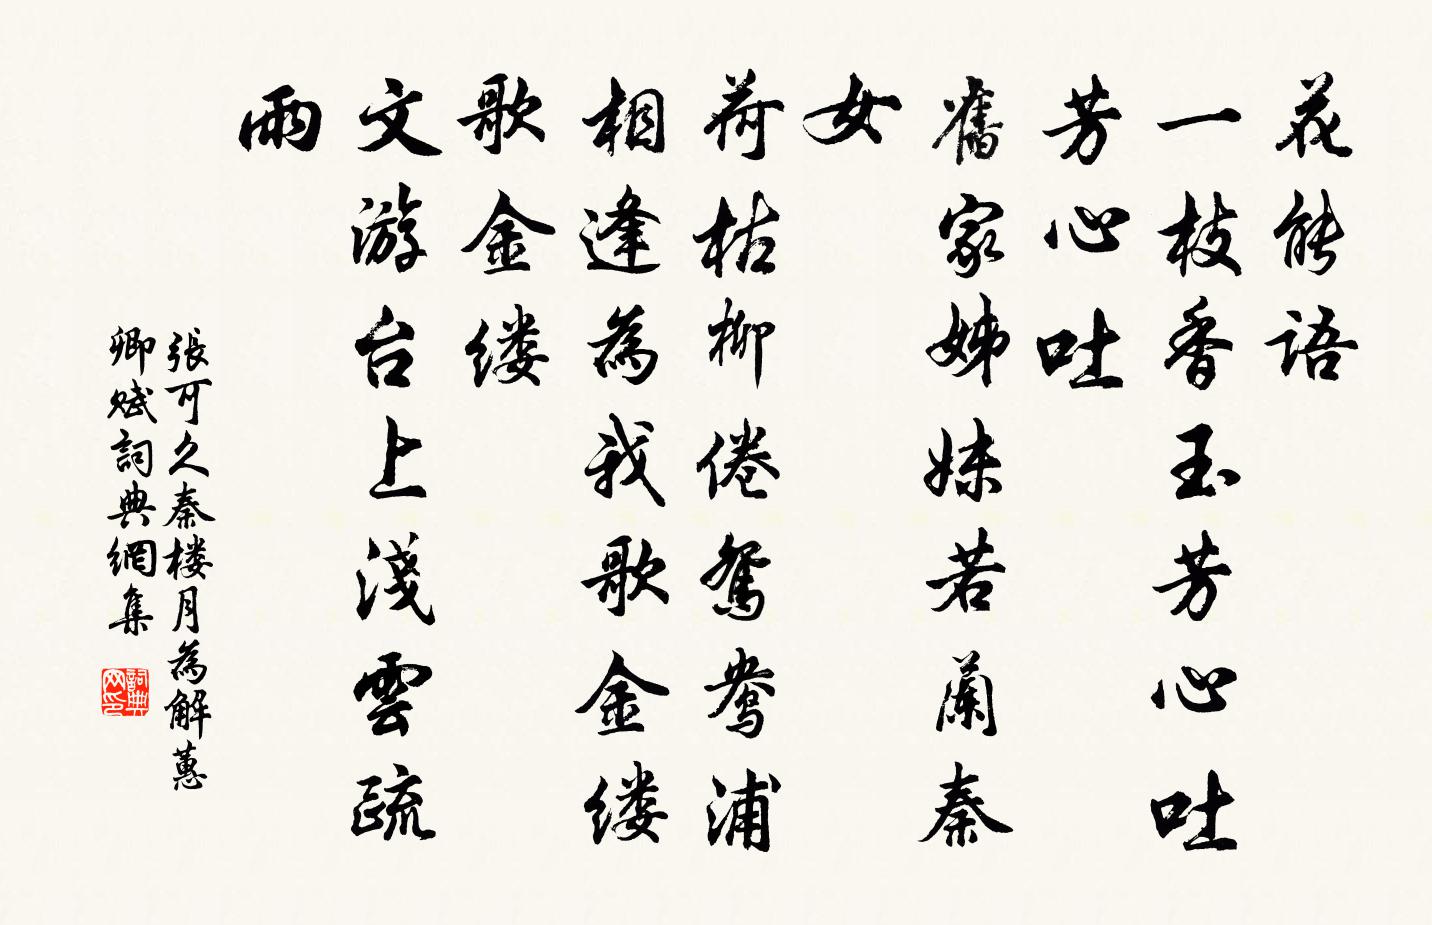 花能语
一枝香玉芳心吐
芳心吐
舊家姊妹若蘭秦
女
荷枯柳倦鴛鴦浦
相逢為我歌金缕
歌金缕
文游台上淺雲疏
雨
張可久秦楼月為解蕙
卿赋詞典網集
詞典
网印